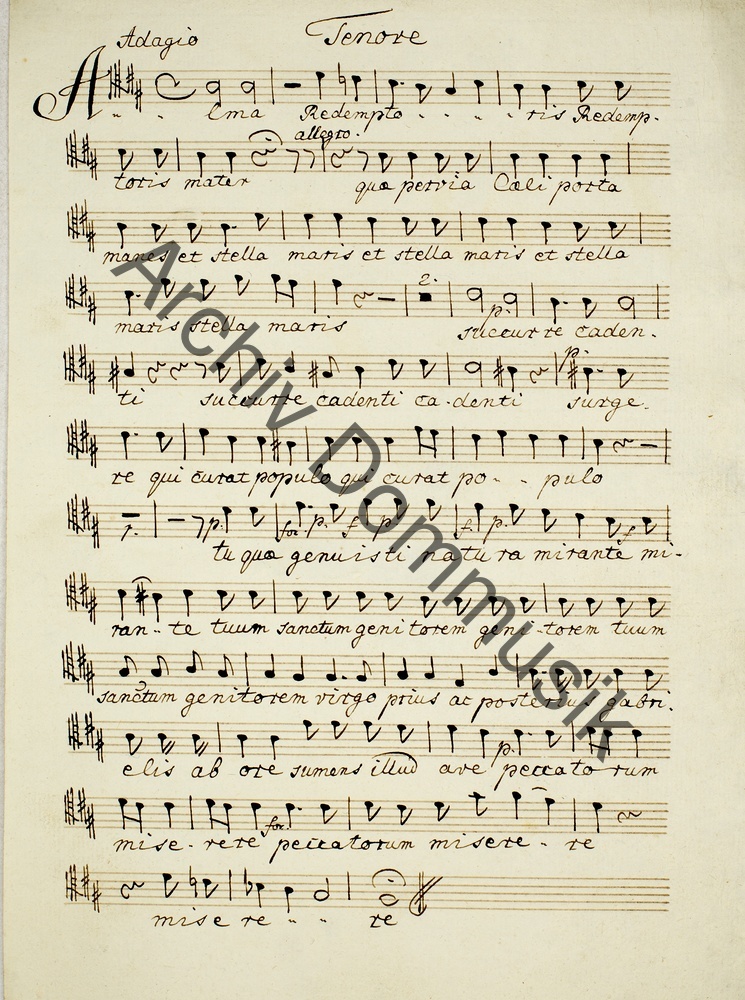 Adagio Tenore
Alma Redempto - - - - ris Redemp-
allegro.
toris mater quæ pervia Cæli porta
manes et stella maris et stella maris et stella
2.
maris stella maris succurre caden-
p.
p.
ti succurre cadenti ca-denti surge-
re qui curat populo qui curat po - - pulo
p. for. p. f. p. f. p. f.
tu quæ genuisti natura mirante mi-
ran - te tuum sanctum genitorem geni-torem tuum
sanctum genitorem virgo prius ac posterius gabri-
p.
elis ab ore sumens illud ave peccato rum
for.
mise - rere peccatorum misere - re
mise re - - re
Archiv Dommusik